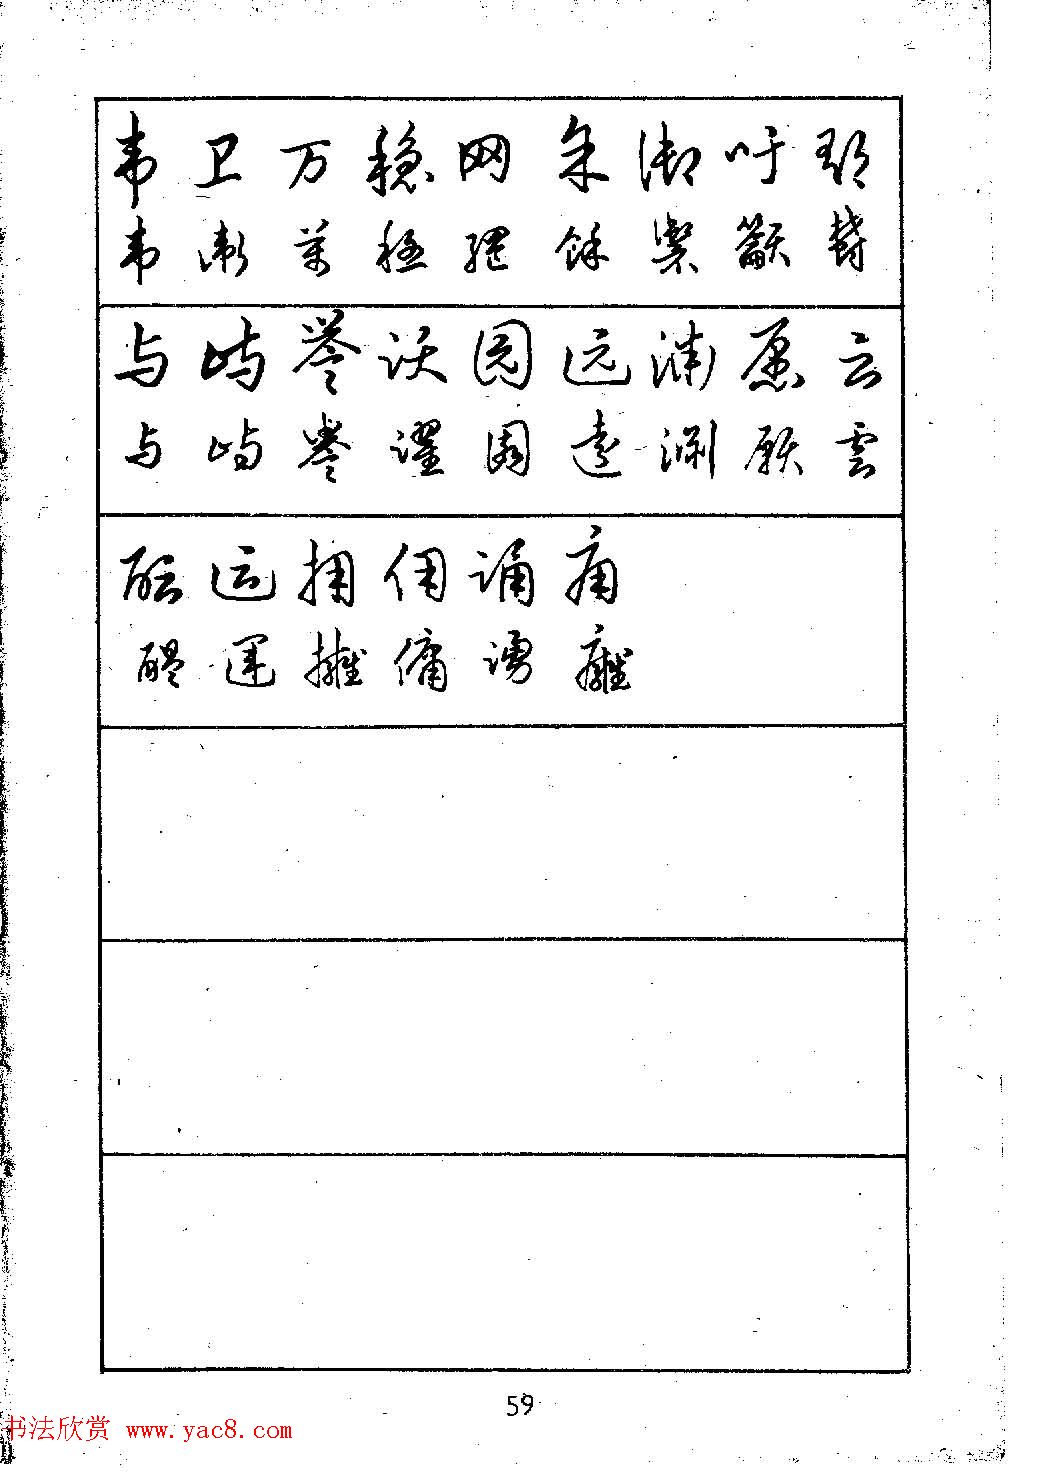 韦 卫 万 稳 网 余 御 吁 郁
韦 衛 萬 穩 網 餘 禦 籲 鬱
与 屿 誉 跃 园 远 渊 愿 云
与 嶼 譽 躍 園 遠 淵 願 雲
酝 运 拥 佣 诵 痈
醖 運 擁 傭 癰
59
书法欣赏 www.yac8.com